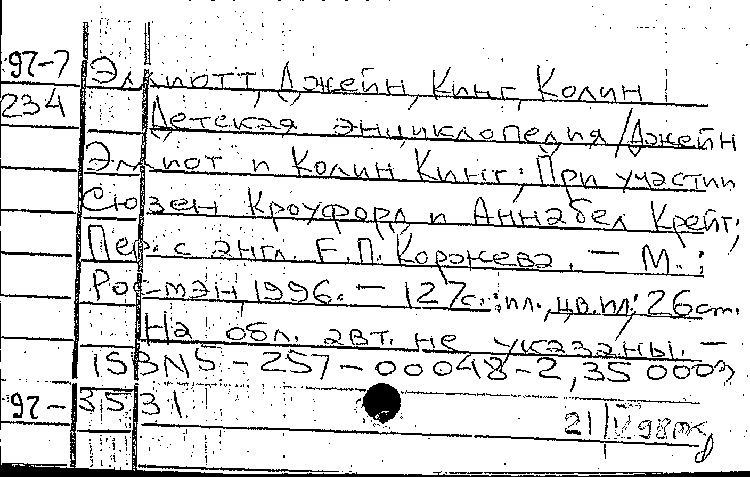 97-7 Эллиотт, Джейн, Кинг, Колин
234 Детская энциклопедия/Джейн
Эллиот и Колин Кинг; При участии
Сюзен Кроуфорд и Аннабел Крейг;
Пер. с англ. Е.П. Коржева. — М.:
Росмэн 1996. — 127с.: ил., цв.ил; 26 cm.
На обл. авт. не указаны. —
ISBN 5-257-00048-2, 35 000
97-3531
21/IV 98